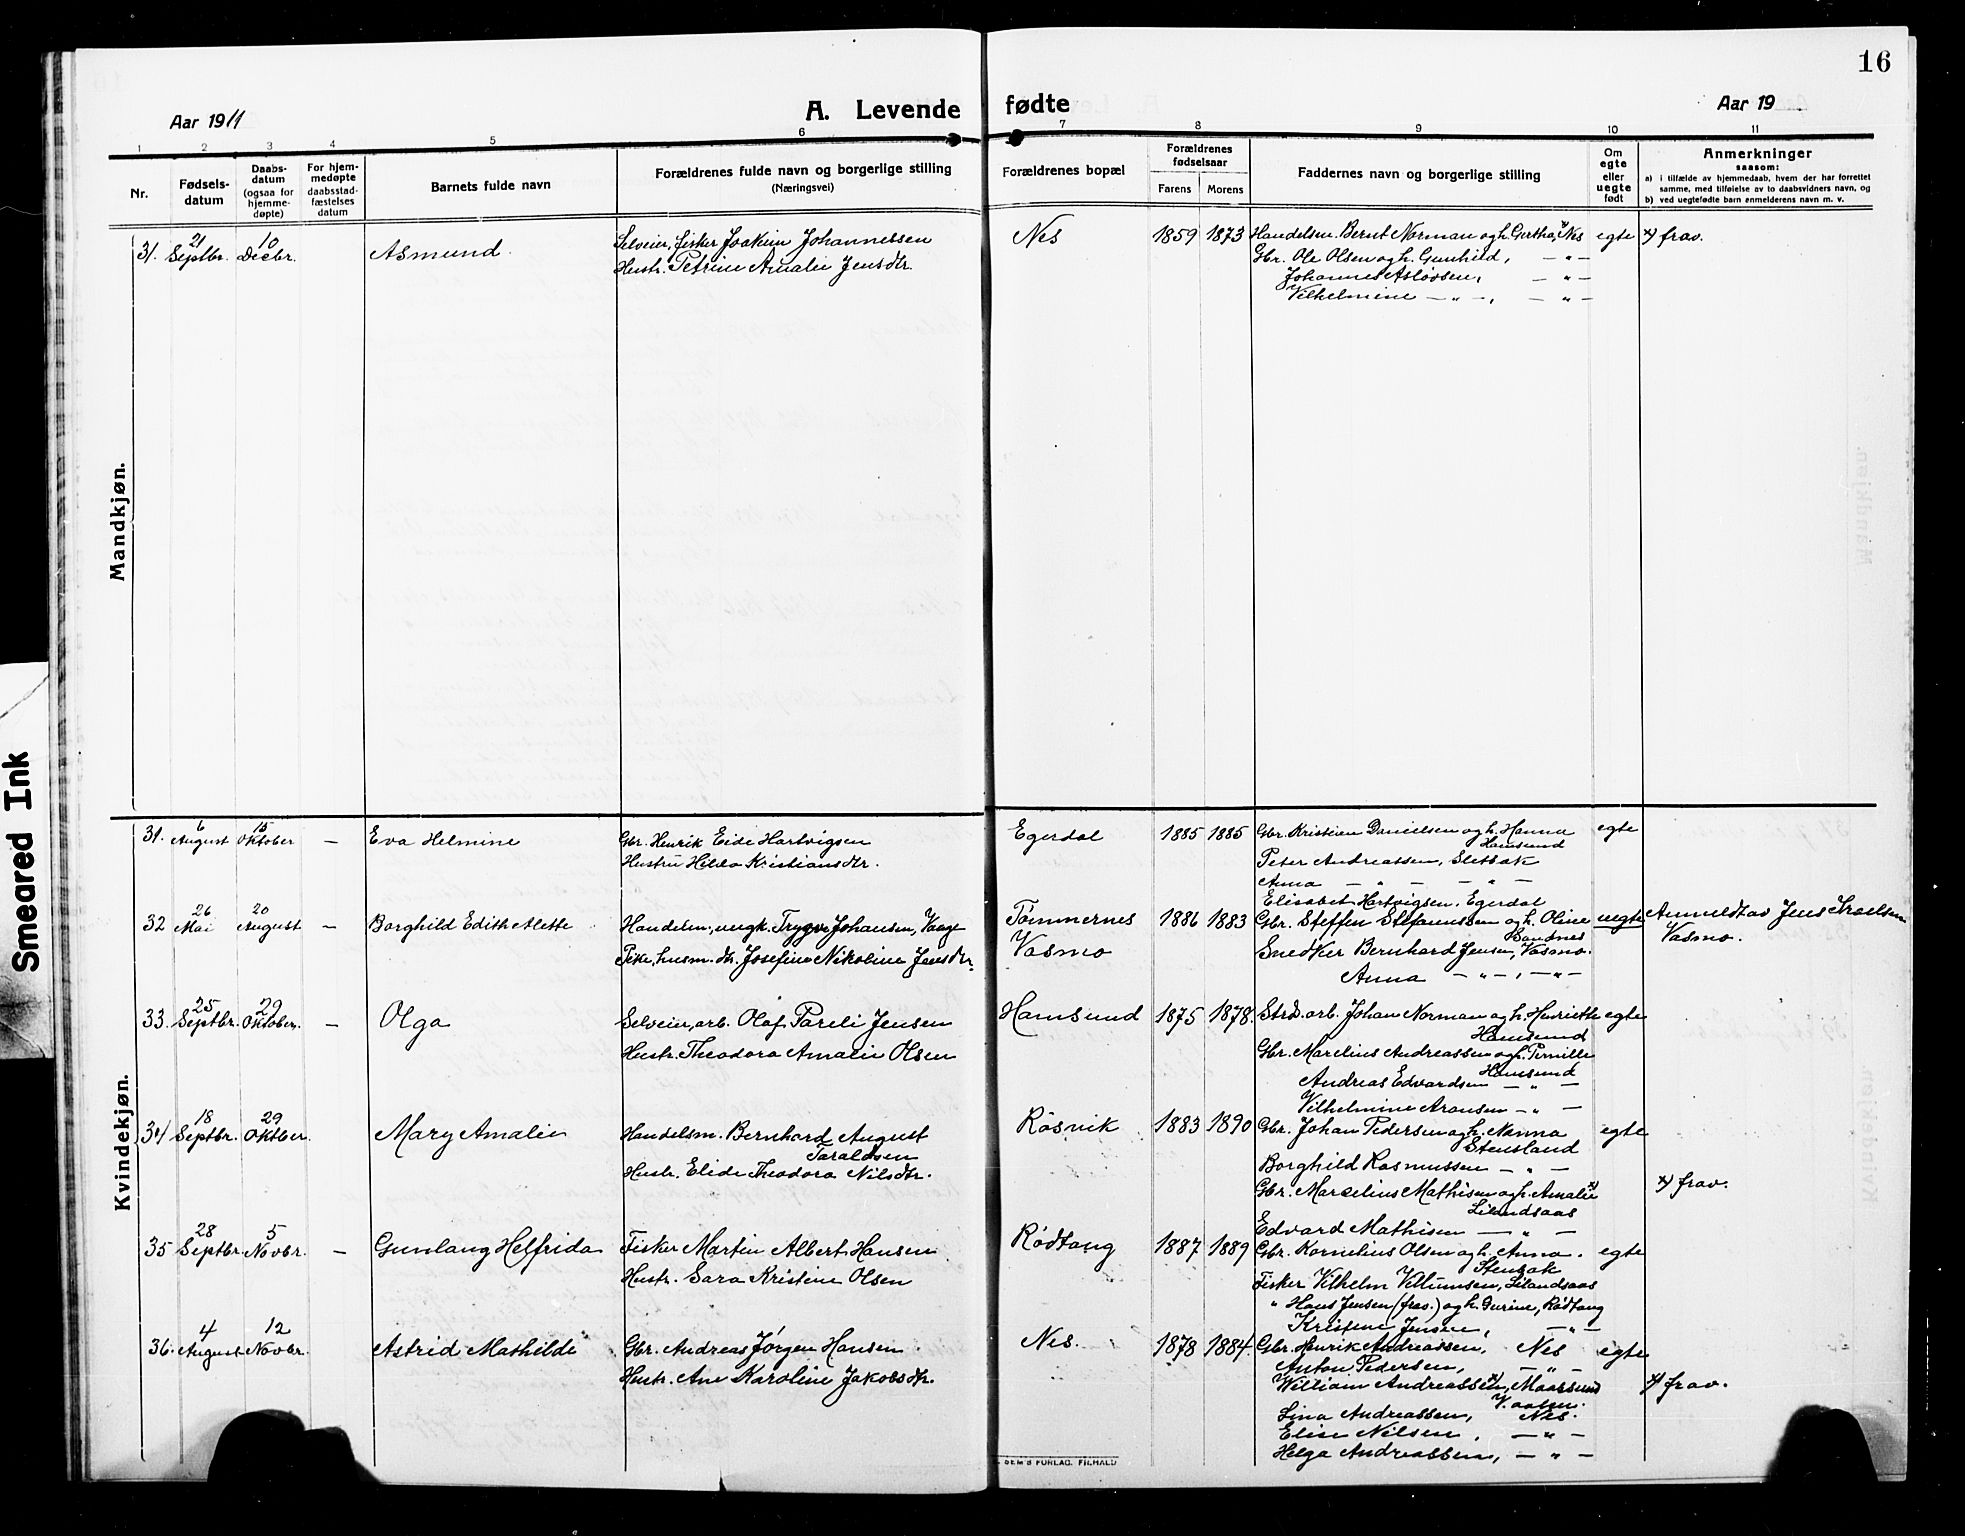 16
Aar 1911
A. Levende fødte
Aar 19
1 2 3 4 5 6 7 8 9 10 11
Nr.
Fødsels-
datum
Daabs-
datum
(ogsaa for
hjemme-
døpte)
For hjem-
medøpte
daabsstad-
fæstelses
datum
Barnets fulde navn
Forældrenes fulde navn og borgerlige stilling
(Næringsvei)
Forældrenes bopæl
Forældrenes
fødselsaar
Farens Morens
Faddernes navn og borgerlige stilling
Om
egte
eller
uegte
født
Anmerkninger
saasom:
a) i tilfælde av hjemmedaab, hvem der har forrettet
samme, med tilføielse av to daabsvidners navn, og
b) ved uegtefødte barn anmelderens navn m. v.
Mandkjøn.
31. 21 Septbr. 10 Decbr. Asmund.
Selveier, fisker Joakim Johannessen
Hustr. Petrine Amalie Jensdtr.
Nes 1859 1873
Handelsm. Bernt Norman og h. Gertha, x) Nes
Gbr. Ole Olsen og h. Gunhild, — " —
Johannes Asløvsen, — " —
Vilhelmine — " —, — " —
egte x) frav.
Kvindekjøn.
31. 6 August 15 Oktober — Eva Helmine
Gbr. Henrik Eide Hartvigsen
Hustru Hilda Kristiansdtr.
Egerdal 1885 1885
Gbr. Kristian Danielsen og h. Hanna
Hamsund
Peter Andreassen, Slettak
Anna — " — — " —
Elisabet Hartvigsen, Egerdal
egte
32 26 Mai 20 August — Borghild Edith Alette
Handelsm., ungk. Trygve Johansen, Vaage
Pike, husm. dtr. Josefine Nikoline Jensdtr.
Tømmernes
Vasmo
1886 1883
Gbr. Steffen Stefanussen og h. Oline
Bondnes
Snedker Bernhard Jensen, Vasmo.
Anna — " —, — " —
uegte
Anmeldt av Jens Israelsen
Vasmo.
33. 25 Septbr. 29 Oktober. — Olga
Selveier, arb. Olaf Pareli Jensen
Hustr. Theodora Amalie Olsen
Hamsund 1875 1878.
Strds. arb. Johan Norman og h. Henriette
Hamsund
Gbr. Marelius Andreassen og h. Pernille
Hamsund
Andreas Edvardsen — " —
Vilhelmine Aronsen — " —
egte
34 18 Septbr. 29 Oktber. Mary Amalie
Handelsm. Bernhard August
Taraldsen
Hustr. Elide Theodora Nilsdtr.
Røsvik 1883 1890
Gbr. Johan Pedersen og h. Nanna
Stensland
Borghild Rasmussen — " —
Gbr. Marselius Mathisen og h. Amalie x)
Lilandsaas
Edvard Mathisen — " —
egte
x) frav.
35 28 Septbr. 5 Novbr. — Gunlaug Helfrida
Fisker Martin Albert Hansen
Hustr. Sara Kristine Olsen
Rødtang 1887 1889
Gbr. Kornelius Olsen og h. Anna.
Stenbak
Fisker Vilhelm Villumsen, Lilandsaas
" Hans Jensen (frav.) og h. Gurine, Rødtang
Kristine Jensen, — " —
egte
36. 4 August 12 Novbr. Astrid Mathilde
Gbr. Andreas Jørgen Hansen
Hustr. Ane Karoline Jakobsdtr.
Nes. 1878 1884.
Gbr. Henrik Andreassen, Nes
Anton Pedersen, — " —
William Andreassen, x) Maarsund
Lina Andreassen, Nes.
Elise Nilsen, — " —
Helga Andreassen, — " —
egte
x) frav.
SEM'S FORLAG, F.HALD
Smeared Ink